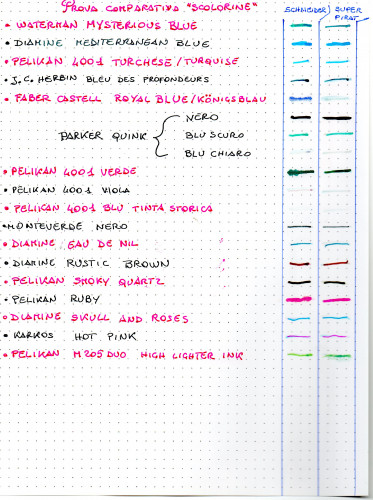 PROVA COMPARATIVA "SCOLORINE"
SCHNEIDER SUPER PIRAT
• WATERMAN MYSTERIOUS BLUE
• DIAMINE MEDITERRANEAN BLUE
• PELIKAN 4001 TURCHESE/TURQUISE
• J.C. HERBIN BLEU DES PROFONDEURS
• FABER CASTELL ROYAL BLUE/KÖNIGSBLAU
NERO
PARKER QUINK BLU SCURO
BLU CHIARO
• PELIKAN 4001 VERDE
• PELIKAN 4001 VIOLA
• PELIKAN 4001 BLU TINTA STORICA
• MONTEVERDE NERO
• DIAMINE EAU DE NIL
• DIAMINE RUSTIC BROWN
• PELIKAN SMOKY QUARTZ
• PELIKAN RUBY
• DIAMINE SKULL AND ROSES
• KARKOS HOT PINK
• PELIKAN M205 DUO HIGH LIGHTER INK